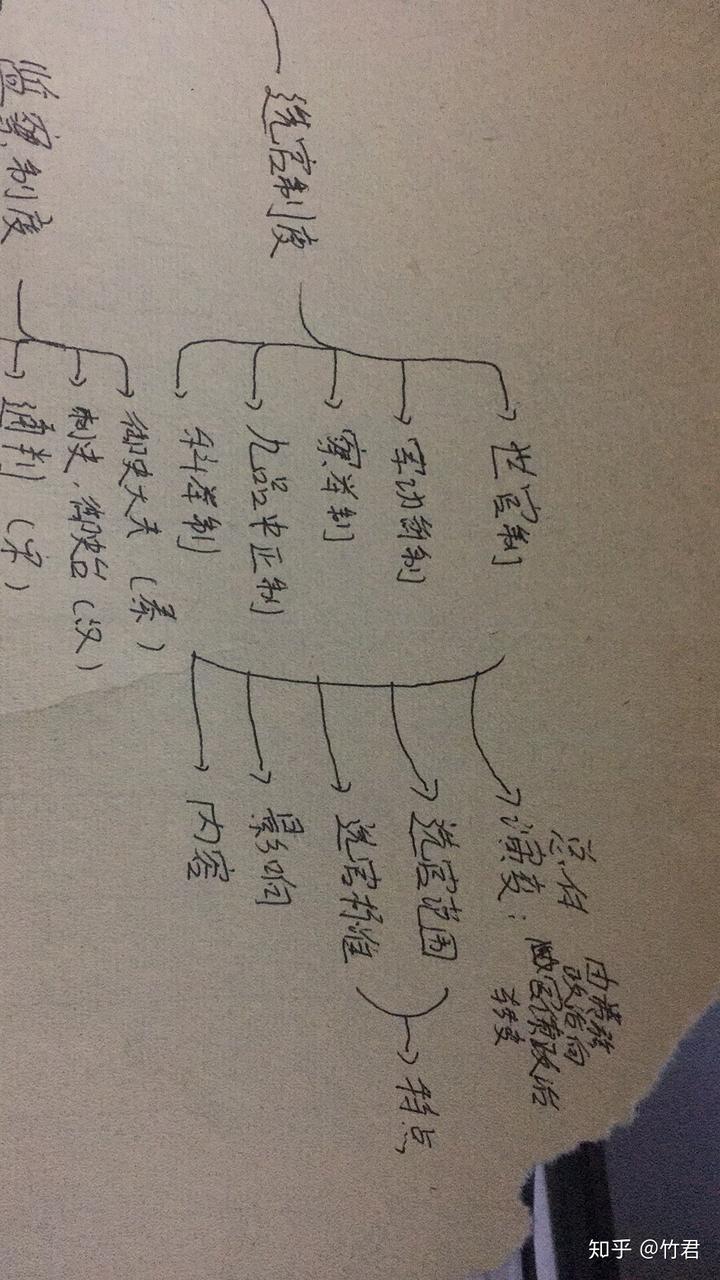 选官制度
世官制
军功爵制
察举制
九品中正制
科举制
总体
演变：
由贵族
政治向
官僚政治
转变
选官范围
选官标准
特点
影响
内容
监察制度
御史大夫（秦）
刺史，御史台（汉）
通判（宋）
知乎 @竹君